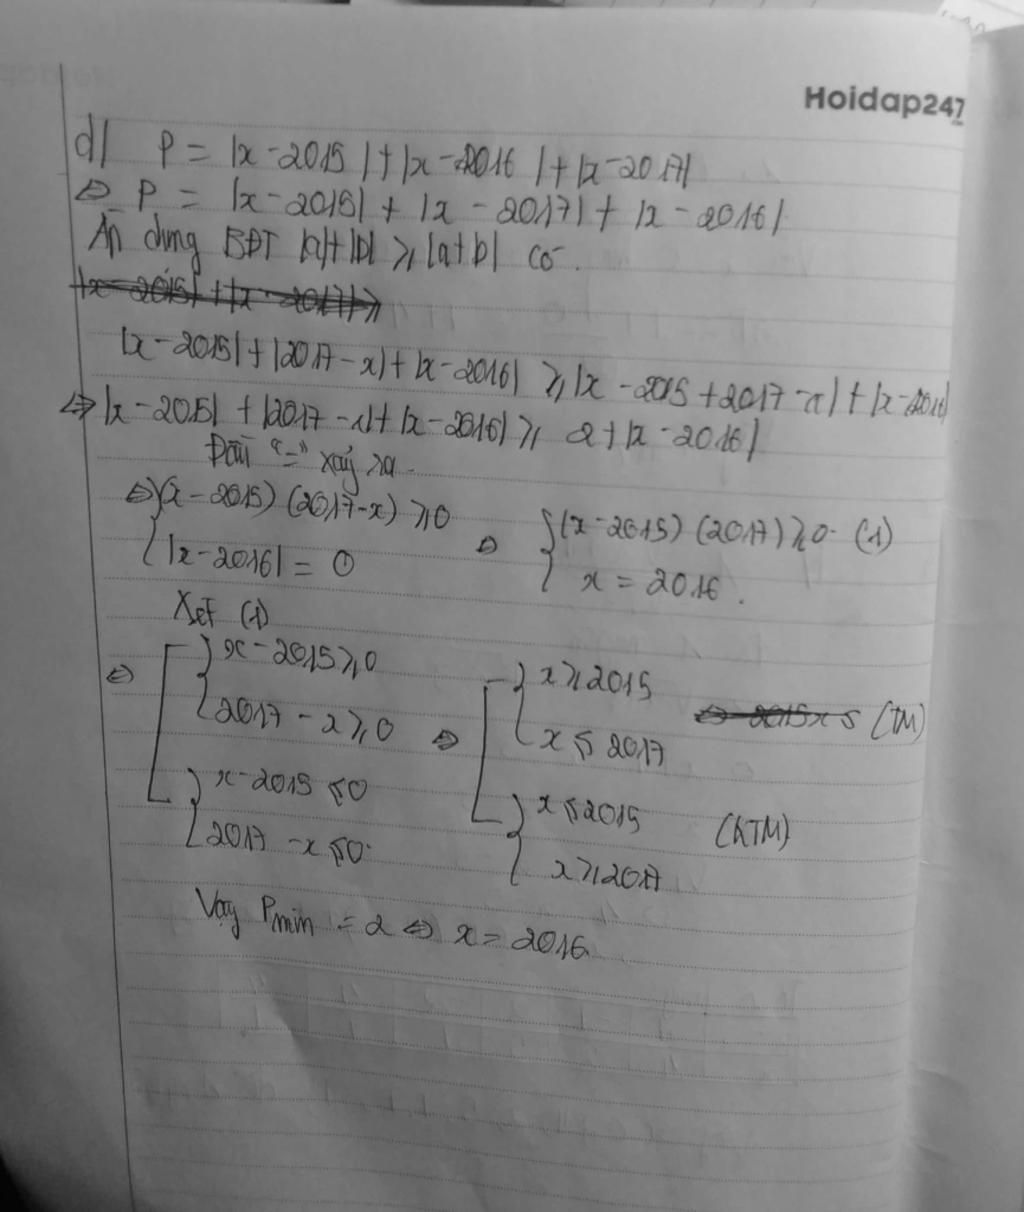 Hoidap247
d| P = |x - 2015| + |x - 2016| + |x - 2017|
⇔ P = |x - 2015| + |x - 2017| + |x - 2016|
Áp dụng BĐT |a|+|b| ≥ |a+b| có
|x - 2015| + |x - 2017| ≥
|x - 2015| + |2017 - x| + |x - 2016| ≥ |x - 2015 + 2017 - x| + |x - 2016|
⇔ |x - 2015| + |2017 - x| + |x - 2016| ≥ 2 + |x - 2016|
Dấu "=" xảy ra
⇔ { (x - 2015) (2017 - x) ≥ 0 ⇔ { (x - 2015) (2017) ≥ 0 (1)
{ |x - 2016| = 0 { x = 2016.
Xét (1)
⇔ [ { x - 2015 ≥ 0 ⇔ [ { x ≥ 2015
{ 2017 - x ≥ 0 { x ≤ 2017 ⇔ 2015 x ≤ (TM)
{ x - 2015 ≤ 0 { x ≤ 2015 (KTM)
{ 2017 - x ≤ 0 { x ≥ 2017
Vậy Pmin = 2 ⇔ x = 2016